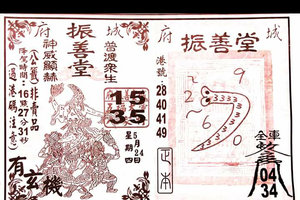 府 城
振善堂
神威顯赫
普渡眾生
(公義)非賣品
降駕時間:16點27分31秒
(過港碼注意)
15
35
5月24日
星期四
有玄機
府 城
振善堂
港號:
28
40
41
49
正本
2 9
~
6 0
3333333
全車
04
34